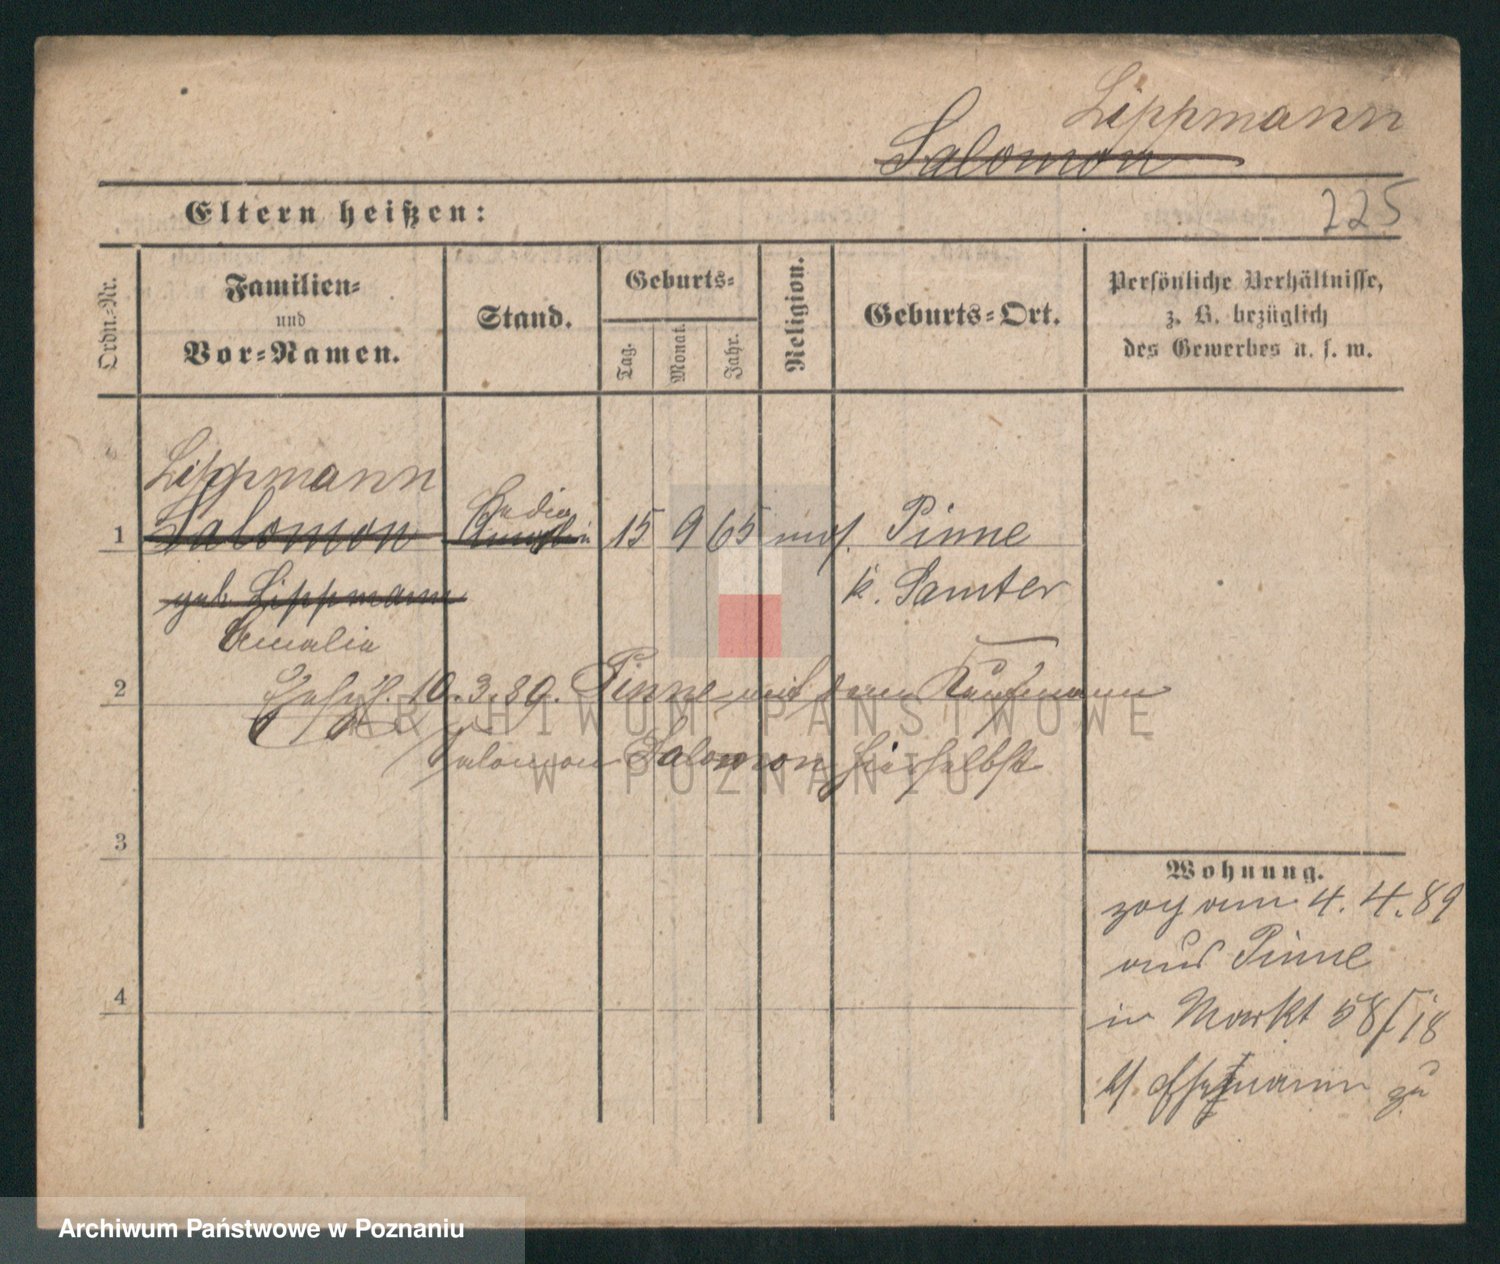 Lippmann
Salomon
Eltern heißen:
225
Ordn.-Nr.
Familien-
und
Vor-Namen.
Stand.
Geburts-
Tag.
Monat.
Jahr.
Religion.
Geburts-Ort.
Persönliche Verhältnisse,
z. B. bezüglich
des Gewerbes u. s. w.
Lippmann
1 Salomon 15 9 65 mos. Pinne
geb. Lippmann k. Samter
Amalia
2 Ehesch. 10.3.89. Pinne mit dem Kaufmann
Salomon Salomon hierselbst
3
4
Wohnung.
zog am 4.4.89
aus Pinne
in Markt 58/18
b/ Ehemann zu
ARCHIWUM PAŃSTWOWE
W POZNANIU
Archiwum Państwowe w Poznaniu